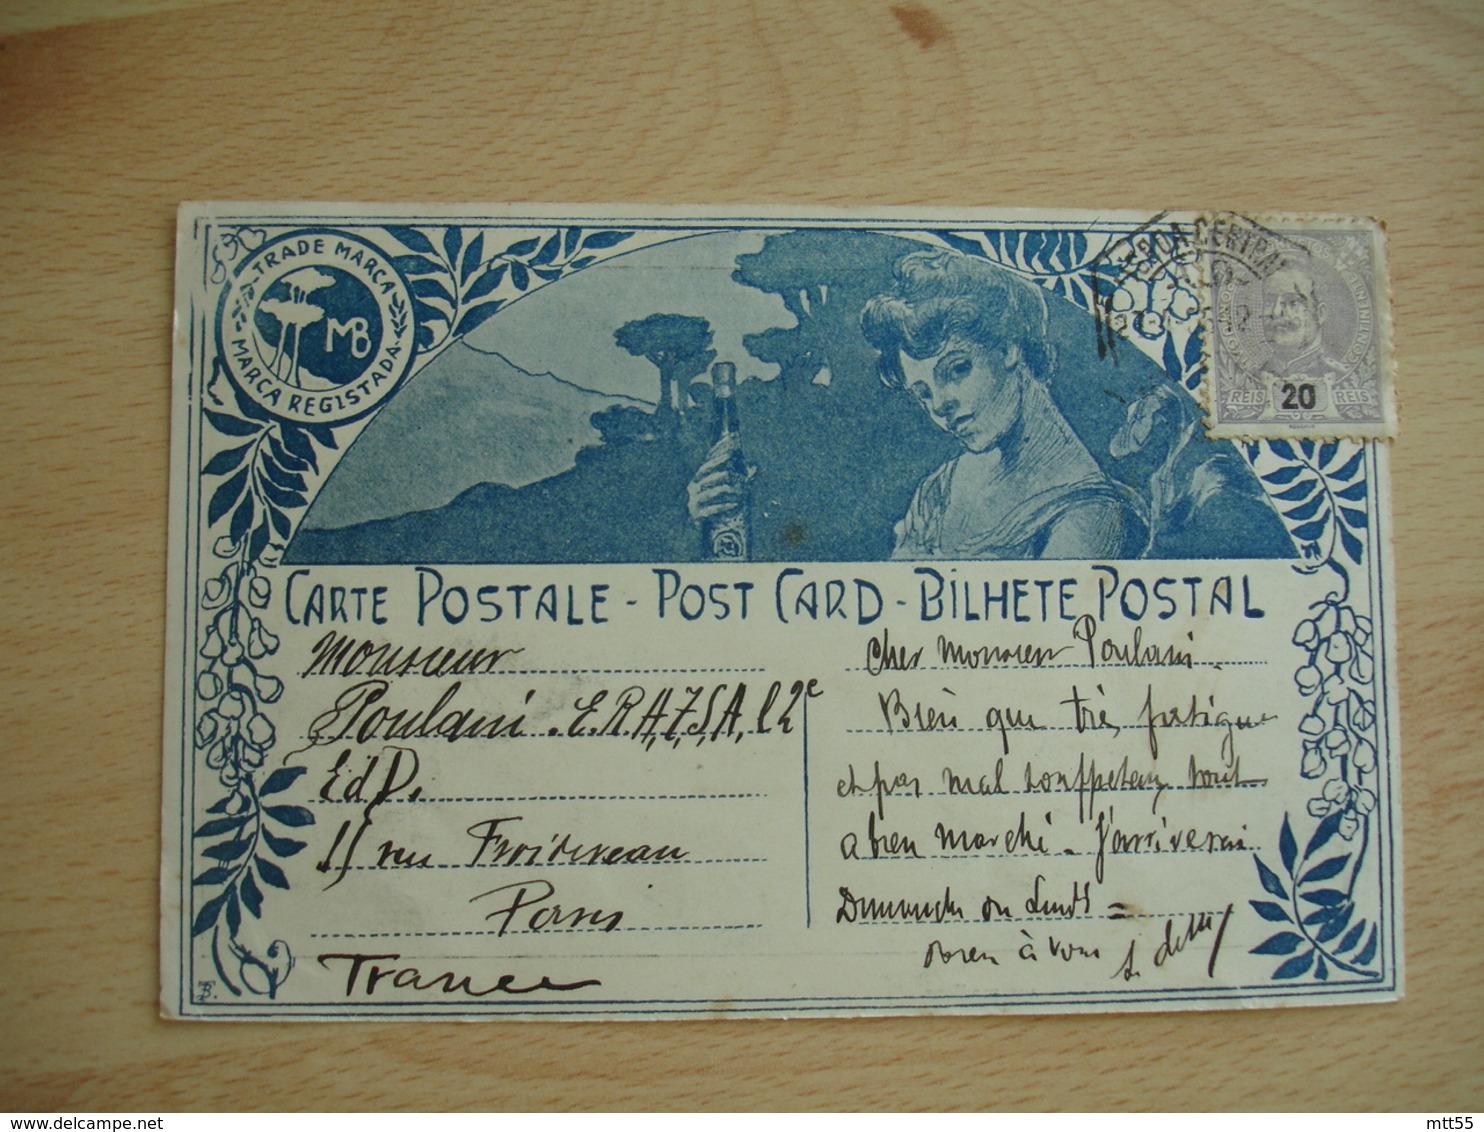 TRADE MARCA
MB
MARCA REGISTADA
CENTRAL
REIS 20 REIS
CARTE POSTALE - POST CARD - BILHETE POSTAL
Monsieur
Poulain. E.R.A,7,S,A, 22e
Ed D.
11 rue Froideveau
Paris
France
Cher Monsieur Poulain.
Bien que très fatigue
et pas mal souffreteux, tout
a bien marché - J'arriverai
Dimanche ou Lundi =
Bien à vous
TB.
mtt55